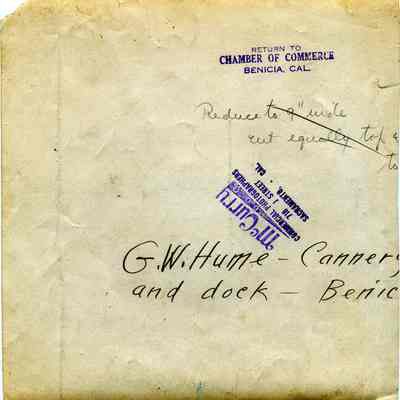 RETURN TO
CHAMBER OF COMMERCE
BENICIA, CAL.
Reduce to 9" wide
cut equally top &
to
McCurry
COMMERCIAL PHOTOGRAPHERS
710 I STREET
SACRAMENTO, CAL.
G.W. Hume - Cannery
and dock - Benic